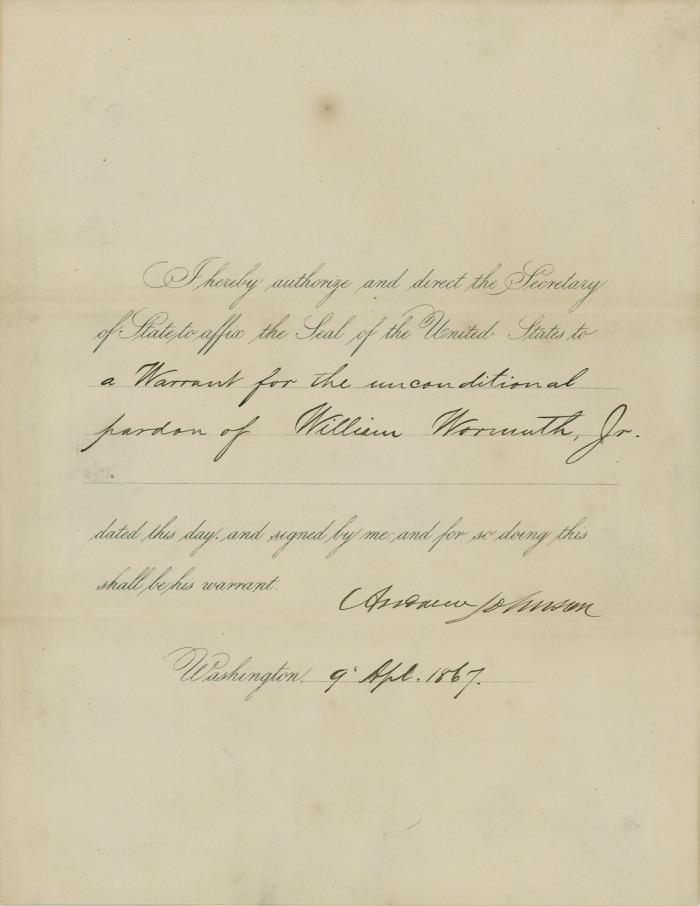 I hereby authorize and direct the Secretary
of State to affix the Seal of the United States to
a Warrant for the unconditional
pardon of William Wormuth, Jr.
dated this day, and signed by me: and for so doing this
shall be his warrant.
Andrew Johnson
Washington, 9' Apl. 1867.